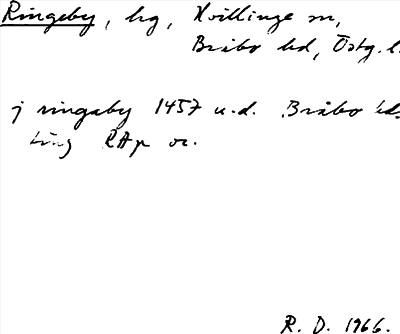 Ringeby, hg, Kvillinge sn,
Bråbo hd, Östg. l.
j ringaby 1457 u.d. Bråbo hds
ting RAp or.
R. D. 1966.